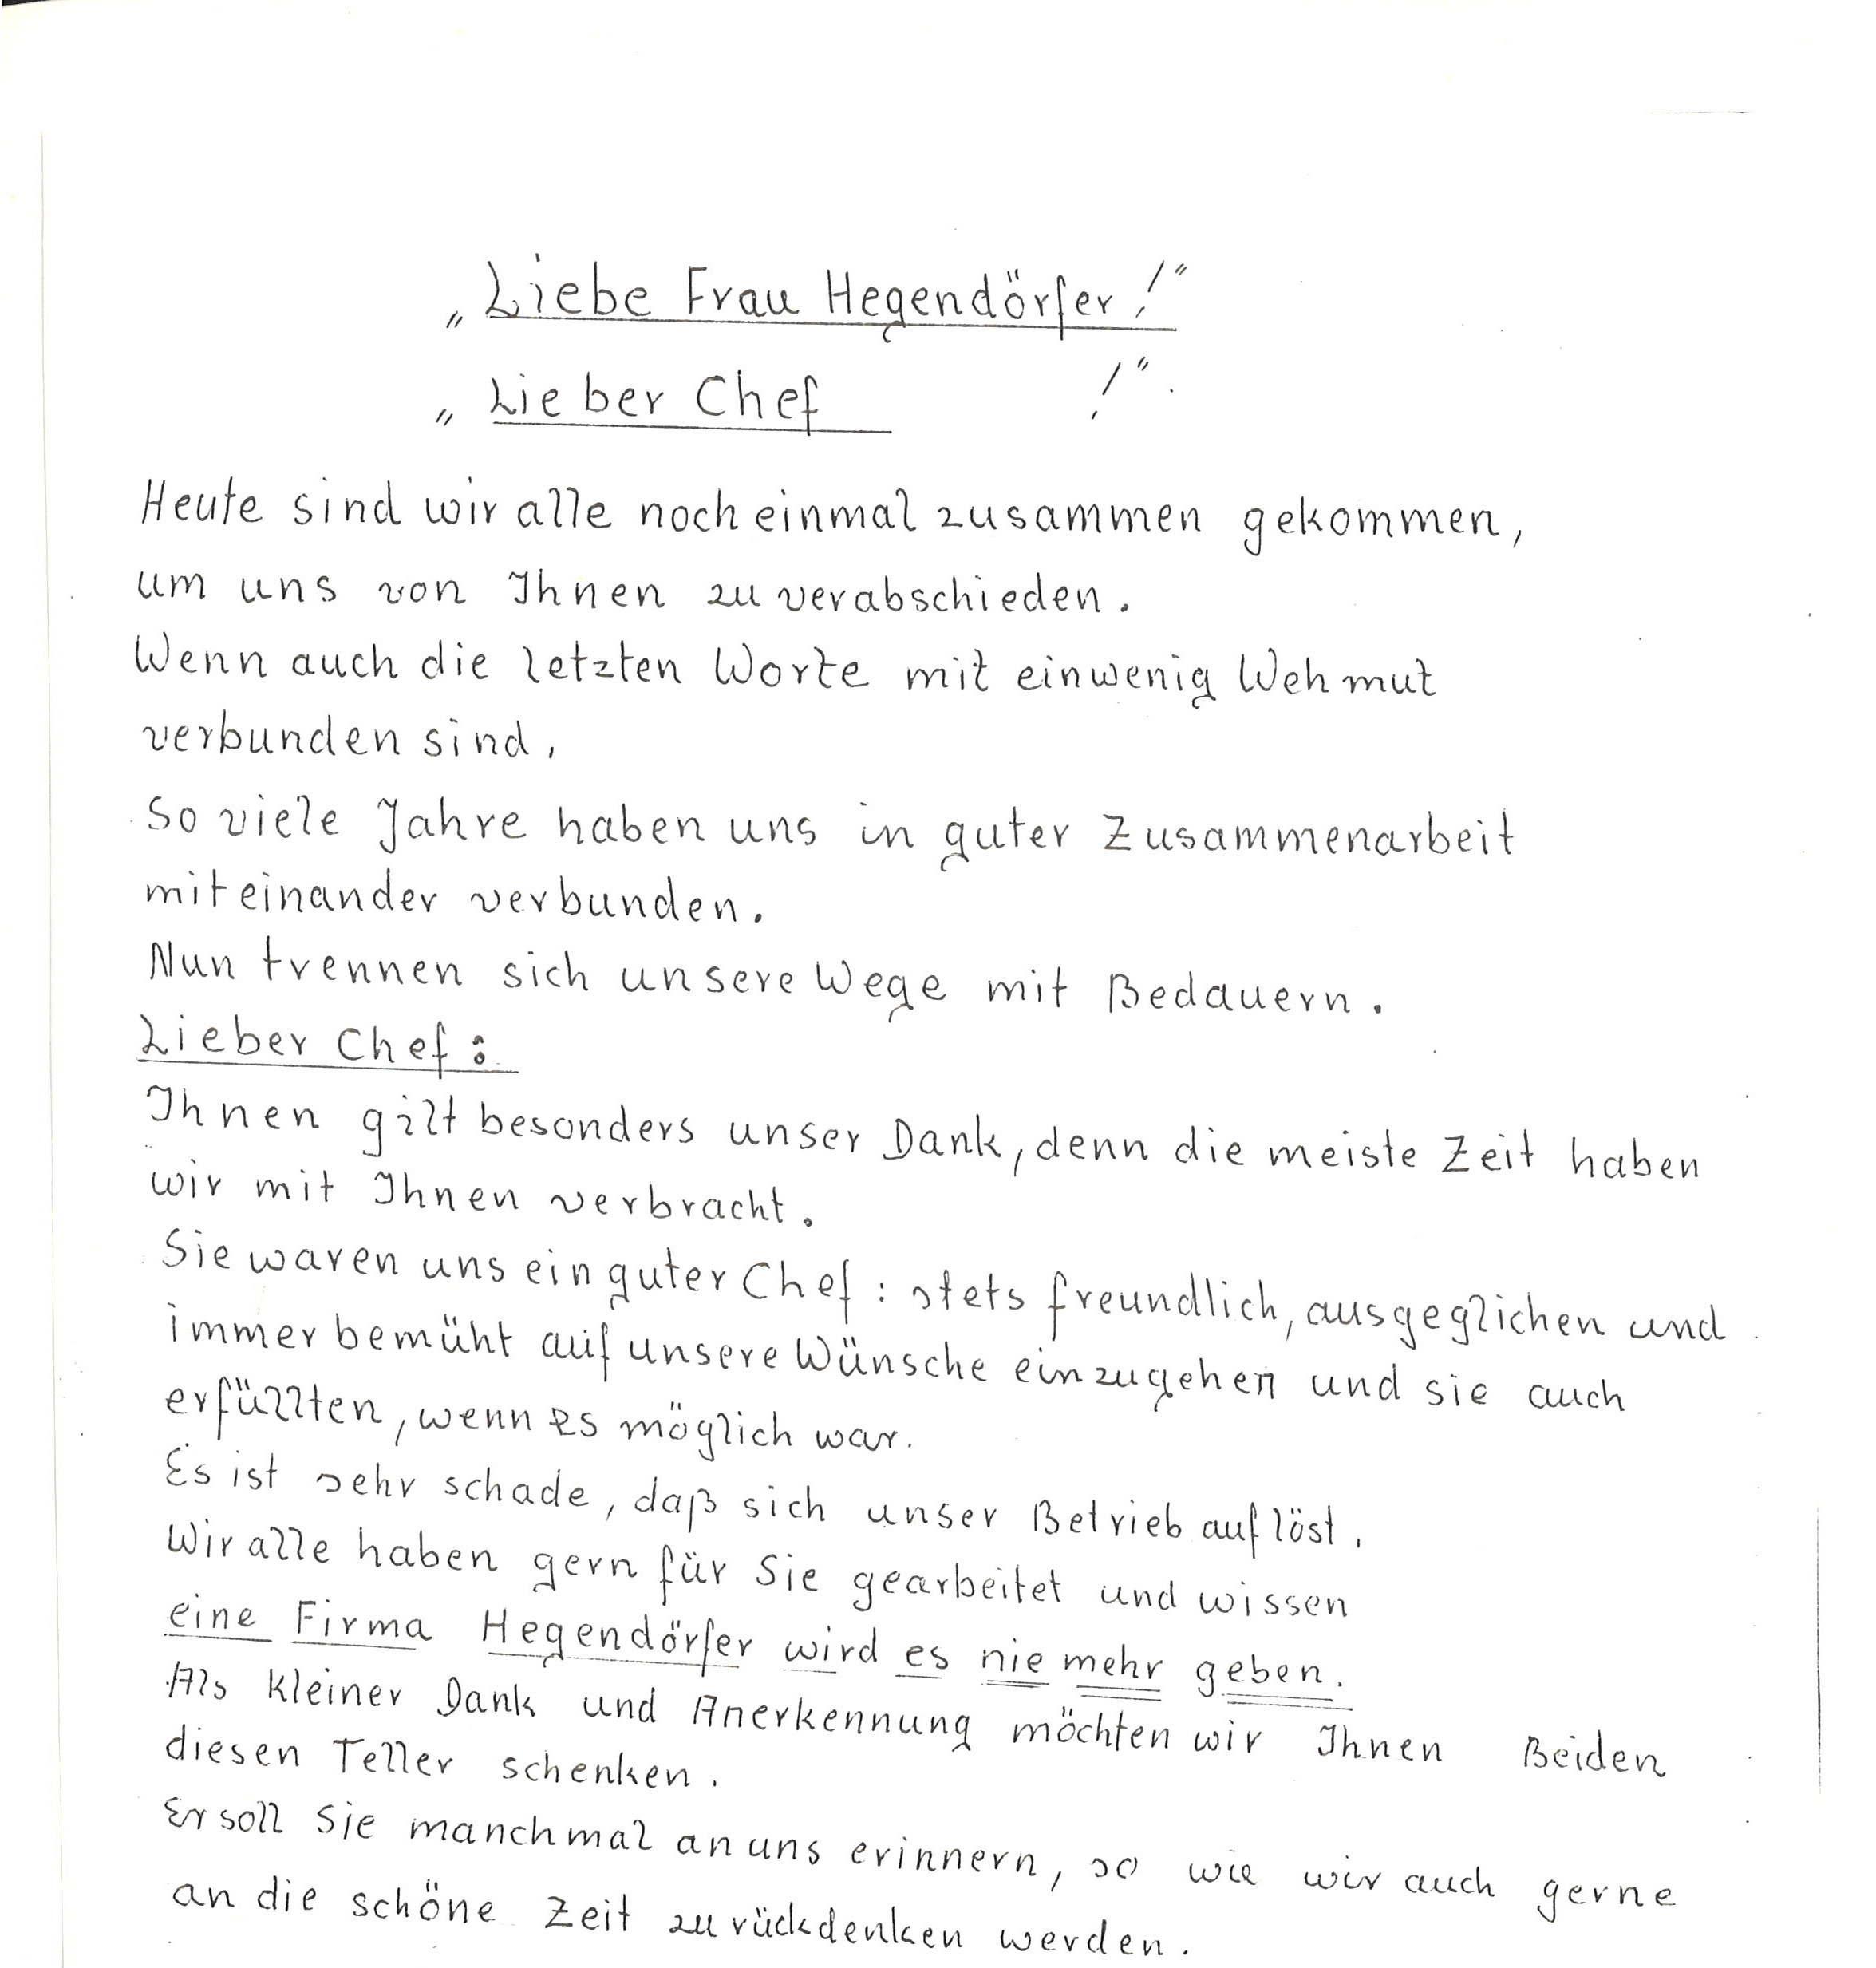 „Liebe Frau Hegendörfer!“
„Lieber Chef !“.
Heute sind wir alle noch einmal zusammen gekommen,
um uns von Ihnen zu verabschieden.
Wenn auch die letzten Worte mit einwenig Wehmut
verbunden sind,
So viele Jahre haben uns in guter Zusammenarbeit
miteinander verbunden.
Nun trennen sich unsere Wege mit Bedauern.
Lieber Chef:
Ihnen gilt besonders unser Dank, denn die meiste Zeit haben
wir mit Ihnen verbracht.
Sie waren uns ein guter Chef: stets freundlich, ausgeglichen und
immer bemüht auf unsere Wünsche einzugehen und sie auch
erfüllten, wenn es möglich war.
Es ist sehr schade, daß sich unser Betrieb auflöst.
Wir alle haben gern für Sie gearbeitet und wissen
eine Firma Hegendörfer wird es nie mehr geben.
Als kleiner Dank und Anerkennung möchten wir Ihnen Beiden
diesen Teller schenken.
Er soll Sie manchmal an uns erinnern, so wie wir auch gerne
an die schöne Zeit zurückdenken werden.